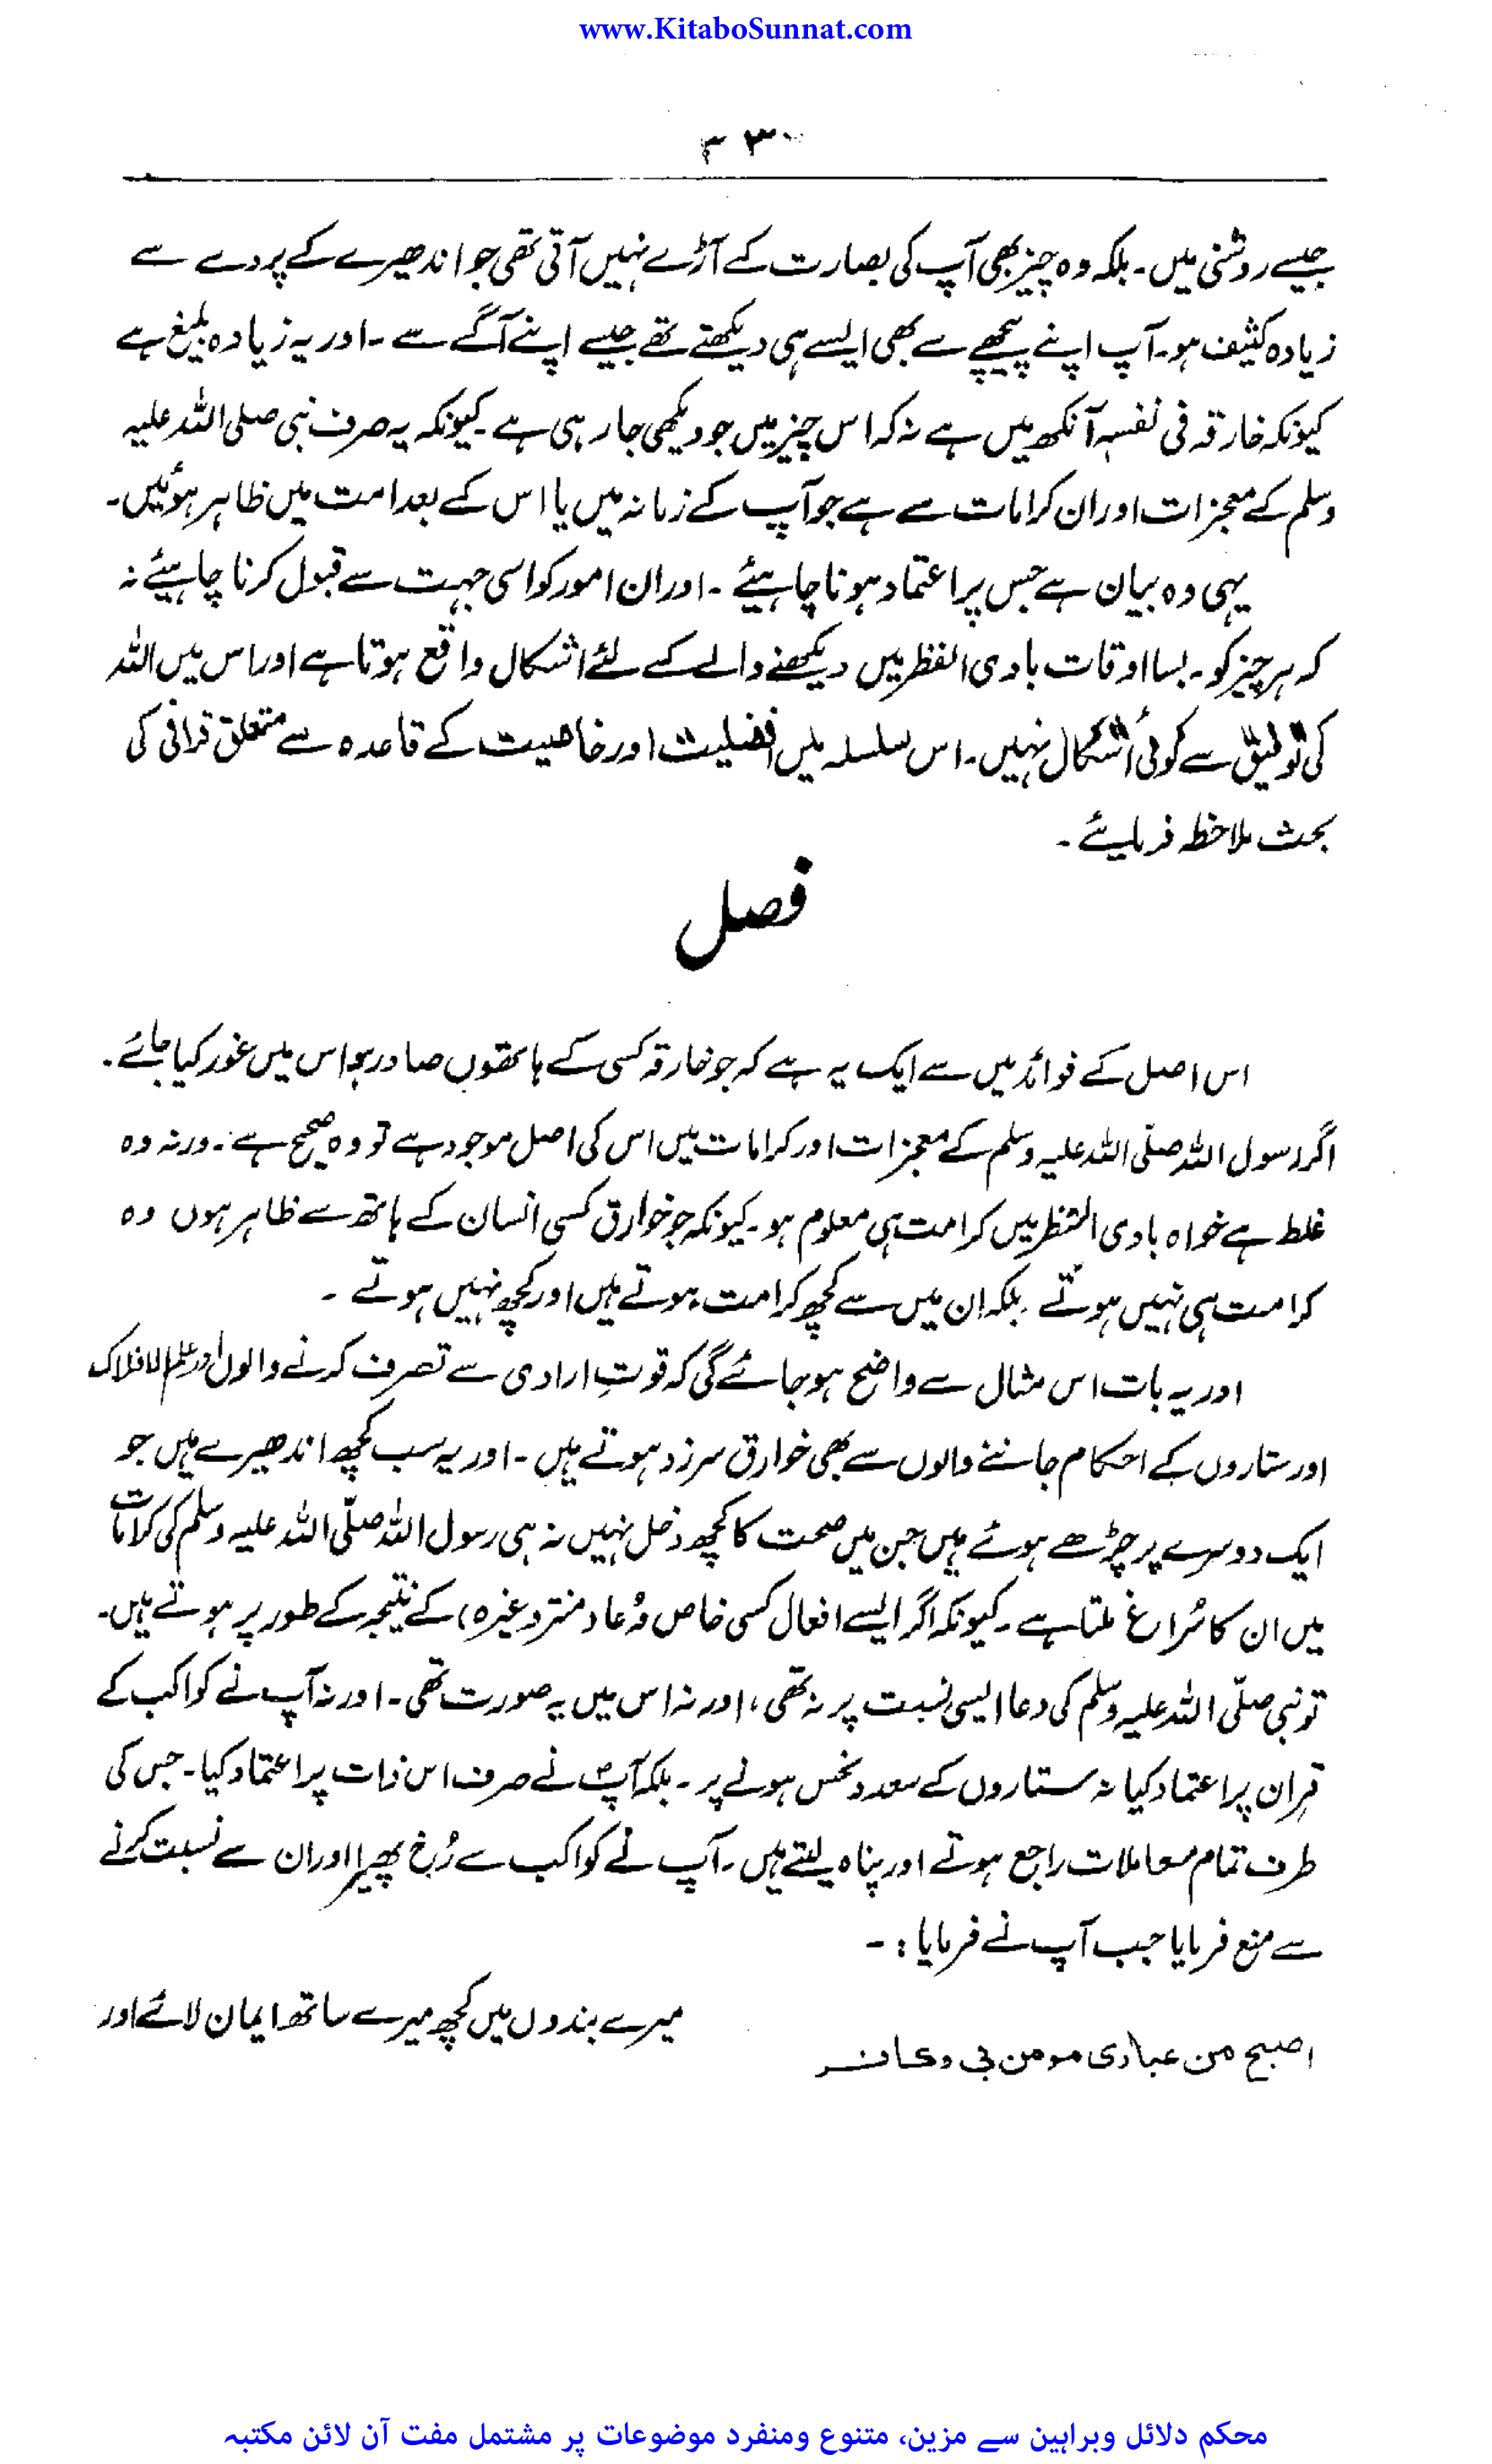 www.KitaboSunnat.com
جیسے روشنی میں۔ بلکہ وہ چیز بھی آپ کی بصارت کے آڑے نہیں آتی تھی جو اندھیرے کے پردے سے
زیادہ کثیف ہو۔ آپ اپنے پیچھے سے بھی ایسے ہی دیکھتے تھے جیسے اپنے آگے سے ۔ اور یہ زیادہ بلیغ ہے
کیونکہ خارقہ فی نفسہٖ آنکھ میں ہے نہ کہ اس چیز میں جو دیکھی جا رہی ہے ۔ کیونکہ یہ صرف نبی صلی اللہ علیہ
وسلم کے معجزات اور ان کرامات سے ہے جو آپ کے زمانہ میں یا اس کے بعد امت میں ظاہر ہوئیں۔
یہی وہ بیان ہے جس پر اعتماد ہونا چاہیئے ۔ اور ان امور کو اسی جہت سے قبول کرنا چاہیئے نہ
کہ ہر چیز کو ۔ بسا اوقات بادی النظر میں دیکھنے والے کے لئے اشکال واقع ہوتا ہے اور اس میں اللہ
کی توفیق سے کوئی اشکال نہیں۔ اس سلسلہ میں افضلیت اور خاصیت کے قاعدہ سے متعلق قرافی کی
بحث ملاحظہ فرمایئے ۔
فصل
اس اصل کے فوائد میں سے ایک یہ ہے کہ جو خارقہ کسی کے ہاتھوں صادر ہو اس میں غور کیا جائے ۔
اگر رسول اللہ صلّی اللہ علیہ وسلم کے معجزات اور کرامات میں اس کی اصل موجود ہے تو وہ صحیح ہے ۔ ورنہ وہ
غلط ہے خواہ بادی النظر میں کرامت ہی معلوم ہو۔ کیونکہ جو خوارق کسی انسان کے ہاتھ سے ظاہر ہوں وہ
کرامت ہی نہیں ہوتے بلکہ ان میں سے کچھ کرامت ہوتے ہیں اور کچھ نہیں ہوتے ۔
اور یہ بات اس مثال سے واضح ہو جائے گی کہ قوتِ ارادی سے تصرف کرنے والوں اور علم الافلاک
اور ستاروں کے احکام جاننے والوں سے بھی خوارق سرزد ہوتے ہیں ۔ اور یہ سب کچھ اندھیرے ہیں جو
ایک دوسرے پر چڑھے ہوئے ہیں جن میں صحت کا کچھ دخل نہیں نہ ہی رسول اللہ صلّی اللہ علیہ وسلم کی کرامات
میں ان کا سُراغ ملتا ہے ۔ کیونکہ اگر ایسے افعال کسی خاص دُعا (منتر وغیرہ) کے نتیجہ کے طور پر ہوتے ہیں۔
تو نبی صلّی اللہ علیہ وسلم کی دعا ایسی نسبت پر نہ تھی، اور نہ اس میں یہ صورت تھی ۔ اور نہ آپ نے کواکب کے
قِران پر اعتماد کیا نہ ستاروں کے سعد و نحس ہونے پر ۔ بلکہ آپؐ نے صرف اس ذات پر اعتماد کیا ۔ جس کی
طرف تمام معاملات راجع ہوتے اور پناہ لیتے ہیں ۔ آپ نے کواکب سے رُخ پھیرا اور ان سے نسبت کرنے
سے منع فرمایا جب آپ نے فرمایا : ۔
اصبح من عبادی مومن بی وکافر
میرے بندوں میں کچھ میرے ساتھ ایمان لائے اور
محکم دلائل وبراہین سے مزین، متنوع ومنفرد موضوعات پر مشتمل مفت آن لائن مکتبہ